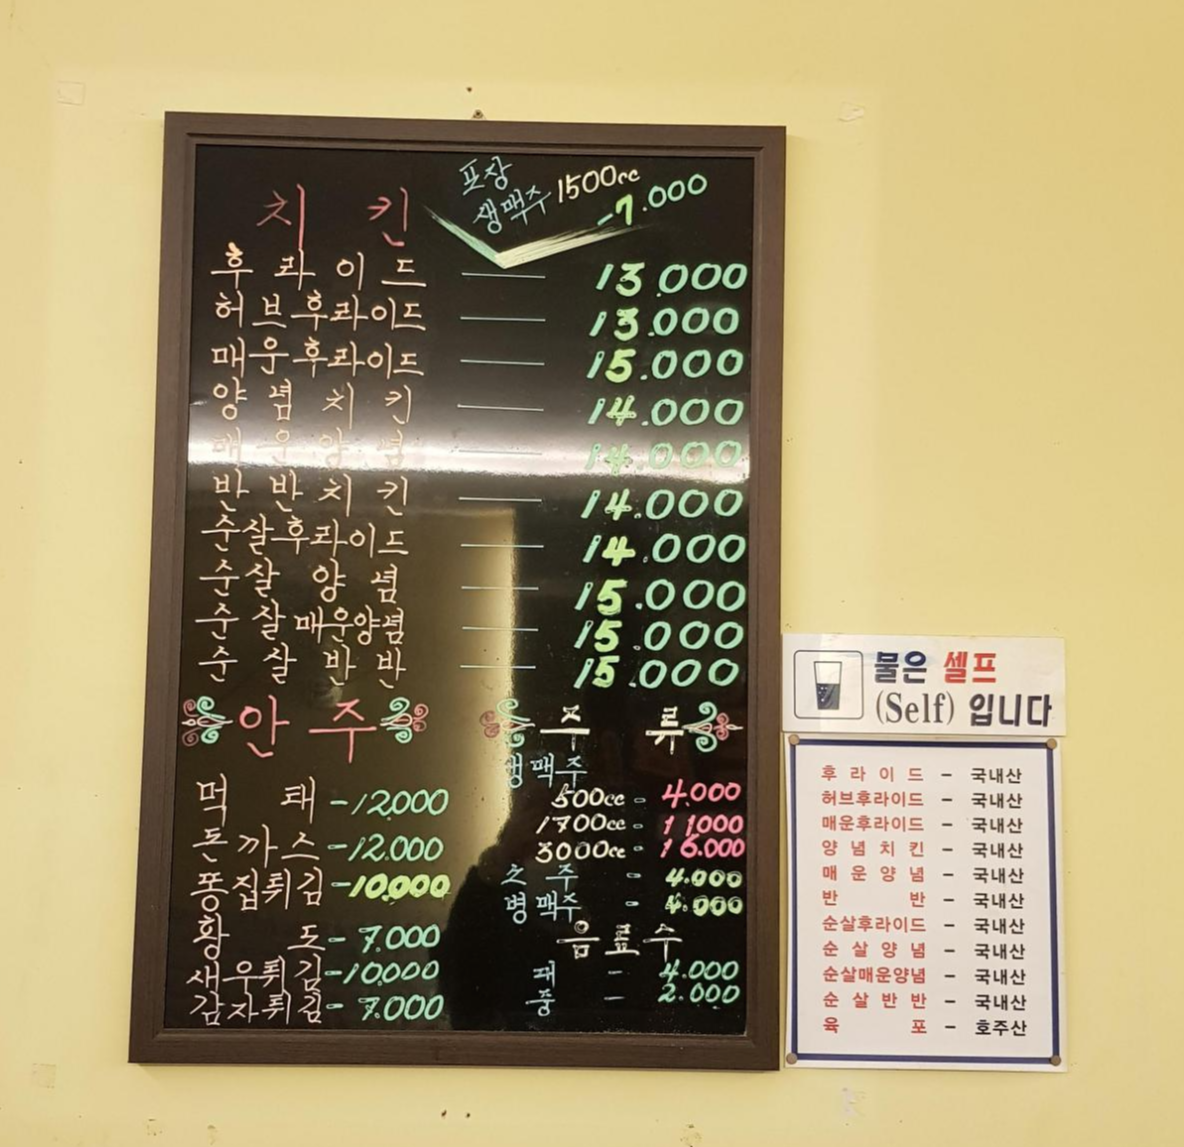 포장
생맥주 1500cc
-7.000
치 킨
후 라 이 드 — 13.000
허브후라이드 — 13.000
매운후라이드 — 15.000
양 념 치 킨 — 14.000
매 운 양 념 14.000
반 반 치 킨 — 14.000
순살후라이드 — 14.000
순살 양 념 — 15.000
순 살매운양념 — 15.000
순 살 반 반 — 15.000
안 주
먹 태 -12.000
돈 까 스 -12.000
똥집튀김 -10.000
황 도 - 7.000
새우튀김 -10000
감자튀김 - 7.000
주 류
생맥주
500cc - 4.000
1700cc - 11000
3000cc - 16.000
소 주 - 4.000
병맥주 - 4.000
음료수
대 - 4.000
중 - 2.000
물은 셀프
(Self) 입니다
후 라 이 드 - 국내산
허브후라이드 - 국내산
매운후라이드 - 국내산
양 념 치 킨 - 국내산
매 운 양 념 - 국내산
반 반 - 국내산
순살후라이드 - 국내산
순 살 양 념 - 국내산
순살매운양념 - 국내산
순 살 반 반 - 국내산
육 포 - 호주산